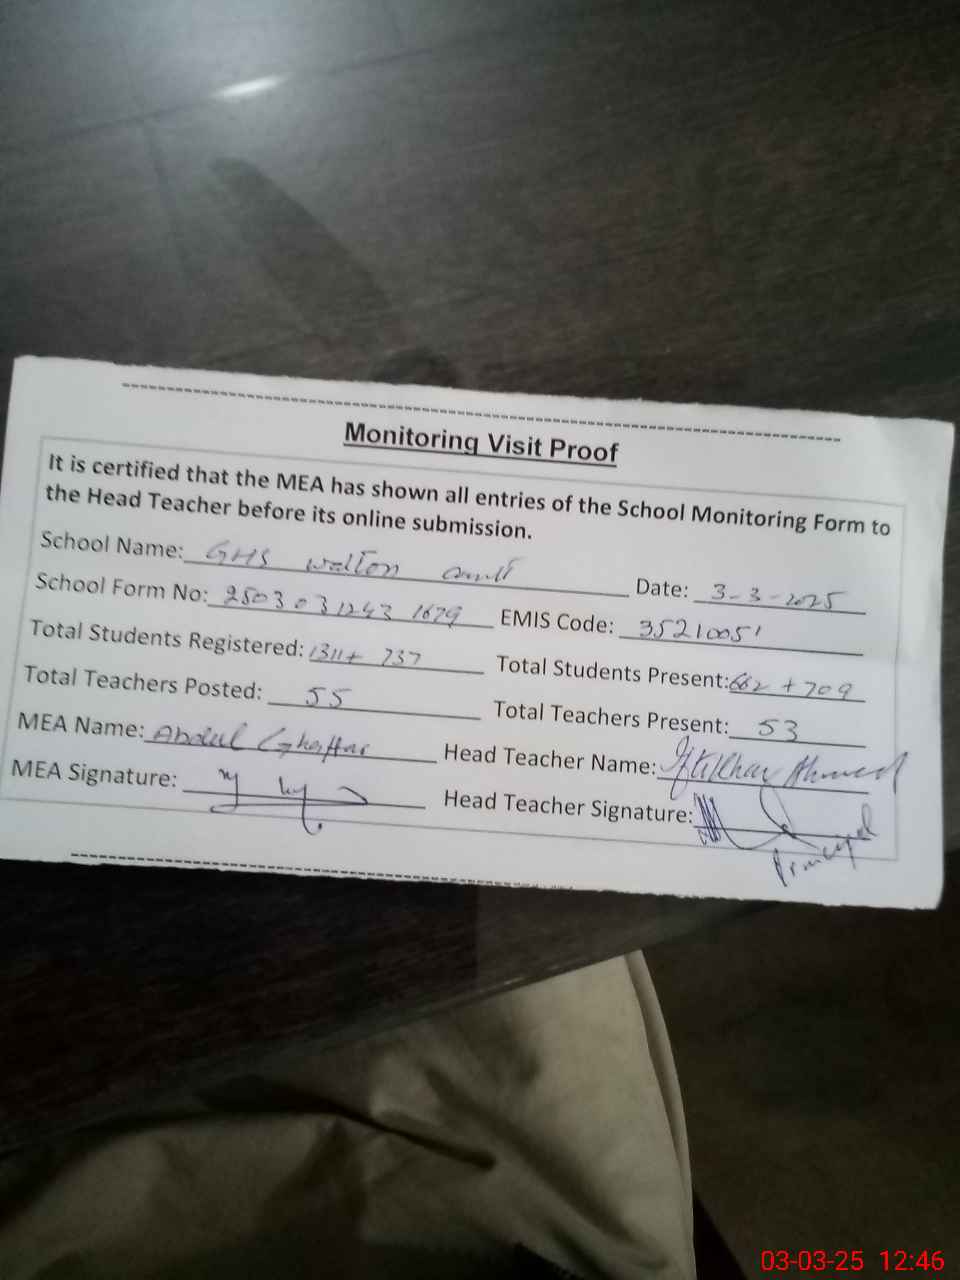 Monitoring Visit Proof
It is certified that the MEA has shown all entries of the School Monitoring Form to
the Head Teacher before its online submission.
School Name: GHS walton cantt Date: 3-3-2025
School Form No: 2503031243 1679 EMIS Code: 35210051
Total Students Registered: 1311+ 737 Total Students Present: 662 + 709
Total Teachers Posted: 55 Total Teachers Present: 53
MEA Name: Abdul Ghaffar Head Teacher Name: Iftikhar Ahmed
MEA Signature: Head Teacher Signature:
Principal
03-03-25 12:46